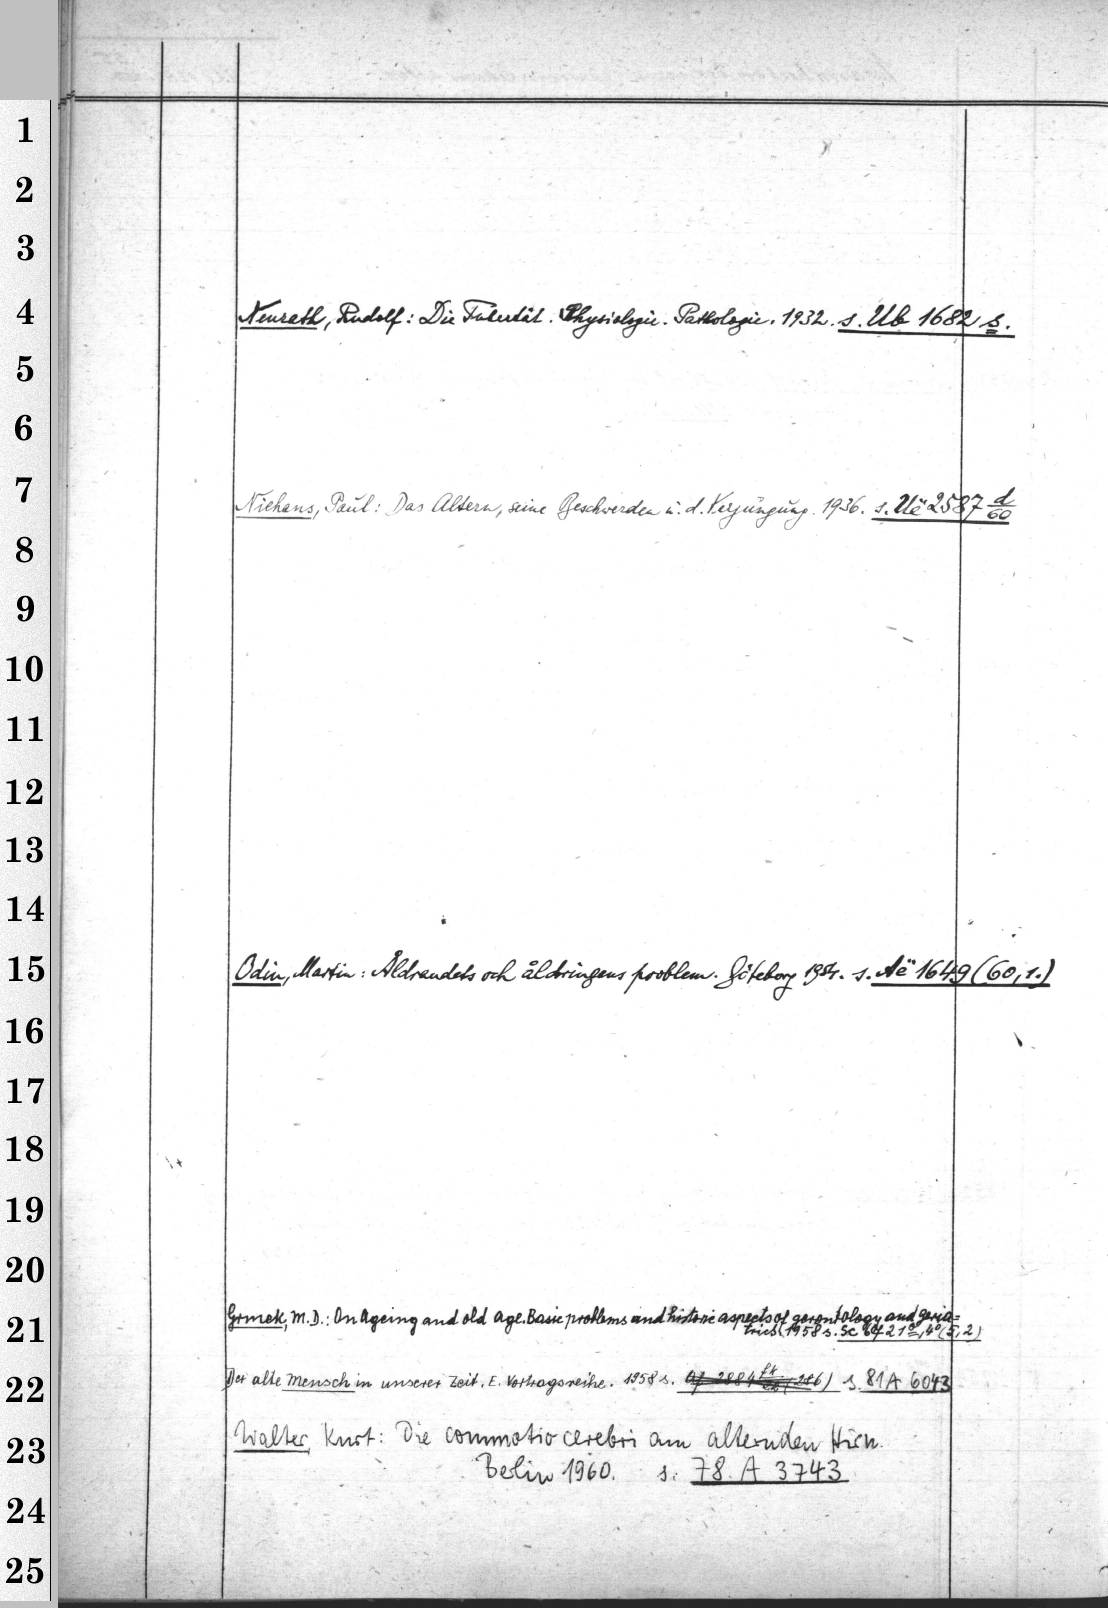 1
2
3
4
Neurath, Rudolf: Die Pubertät. Physiologie. Pathologie. 1932. s. Ub 1682 s.
5
6
7
Niehans, Paul: Das Altern, seine Beschwerden u. d. Verjüngung. 1936. s. Uë 2587 d/60
8
9
10
11
12
13
14
15
Odin, Martin: Åldrandets och åldringens problem. Göteborg 1954. s. Aë 1649 (60,1.)
16
17
18
19
20
21
Grmek, M.D.: On Ageing and old age. Basic problems and historic aspects of gerontology and geria=
trics (1958 s. Sc 21 4° (5,2)
22
Der alte Mensch in unserer Zeit. E. Vortragsreihe. 1958 s. 2884 s 81 A 6043
23
Walter, Kurt: Die commotio cerebri am alternden Hirn.
Berlin 1960. s. 78 A 3743
24
25